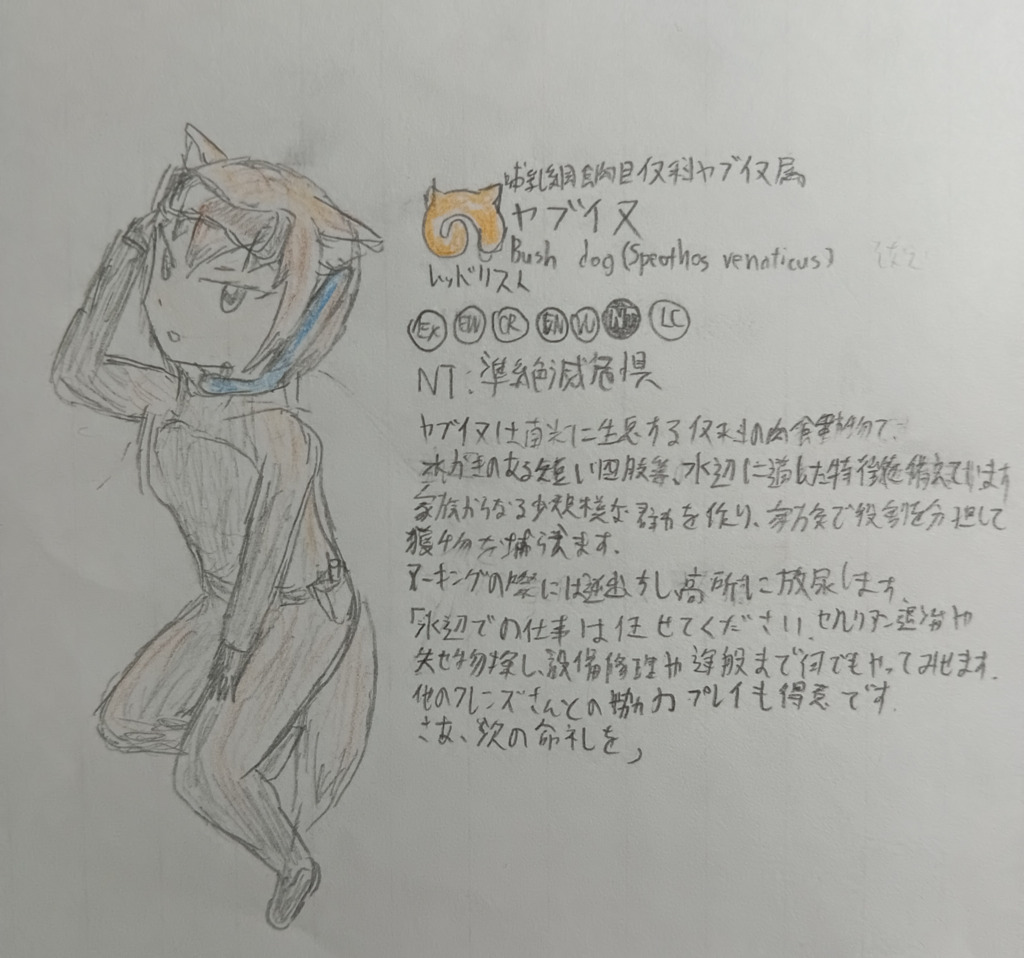 哺乳綱食肉目イヌ科ヤブイヌ属
ヤブイヌ
Bush dog (Speothos venaticus)
レッドリスト
EX EW CR EN VU NT LC
NT:準絶滅危惧
ヤブイヌは南米に生息するイヌ科の肉食動物で、
水かきのある短い四肢等、水辺に適した特徴を備えています
家族からなる小規模な群れを作り、家族で役割を分担して
獲物を捕らえます.
マーキングの際には逆立ちし高所に放尿します.
「水辺での仕事は任せてください.セルリアン退治や
失せ物探し、設備修理や運搬まで何でもやってみせます.
他のフレンズさんとの協力プレイも得意です.
さあ、次の命令を」